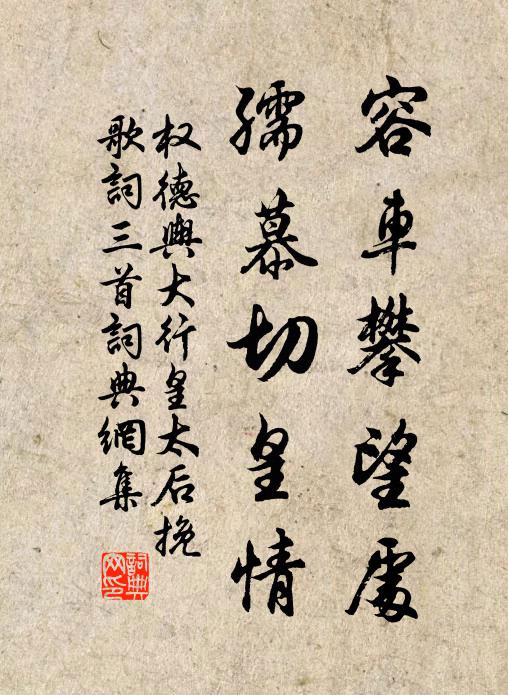 容車攀望處
孺慕切皇情
权德輿大行皇太后挽
歌詞三首詞典網集
詞典
网印